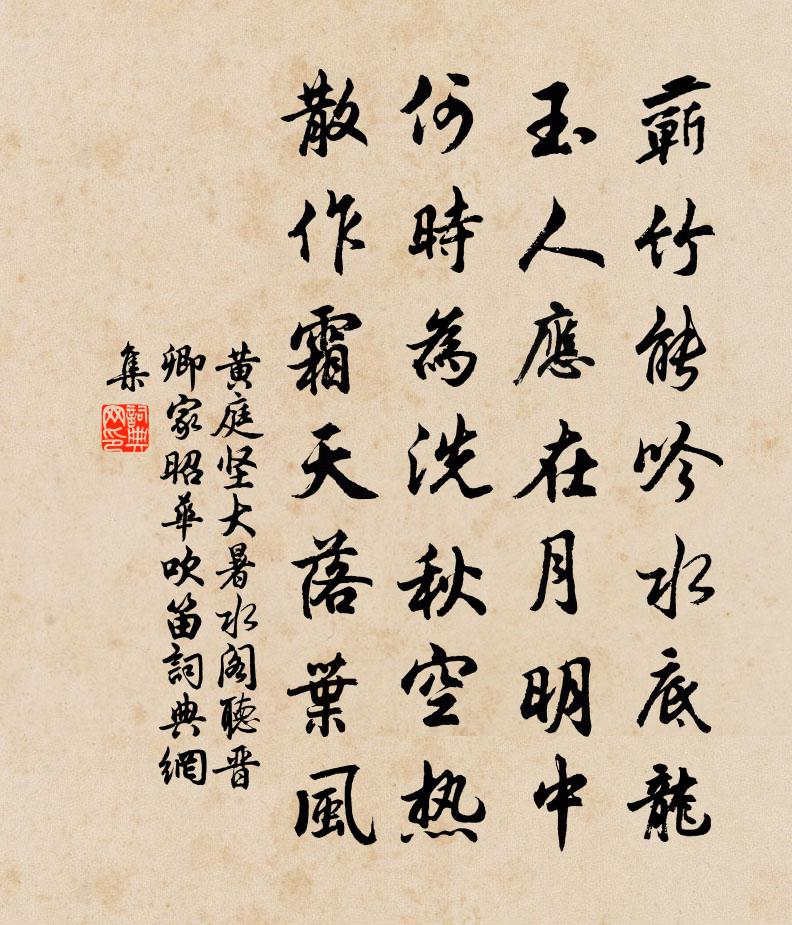 蘄竹能吟水底龍
玉人應在月明中
何時為洗秋空热
散作霜天落葉風
黄庭坚大暑水阁聽晋
卿家昭華吹笛詞典網
集
詞典
网印